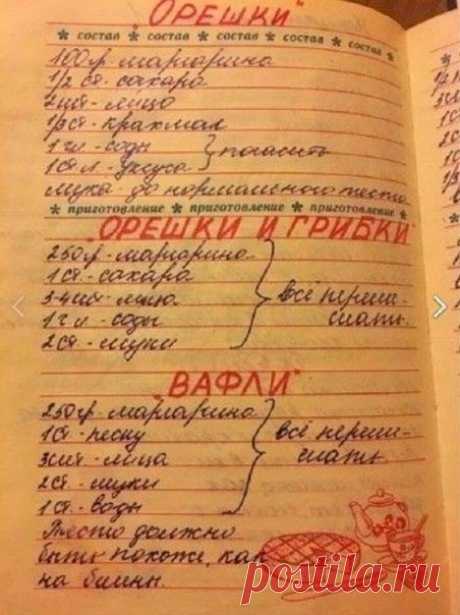 "ОРЕШКИ"
* состав * состав * состав * состав * состав *
100гр. маргарина
1/2 ст. сахара
2шт - яйцо
1/3 ст - крахмал
1 ч л - соды } погасить
1 ст л - уксуса
мука до нормального теста
* приготовление * приготовление * приготовление *
"ОРЕШКИ И ГРИБКИ"
250гр - маргарина
1 ст. - сахара
3-4шт - яйца } Всё переме-
1 ч л - соды шать.
2 ст - муки
"ВАФЛИ"
250гр - маргарина
1 ст - песку } всё переме-
3шт - яйца шать
2 ст - муки
1 ст. - воды
Тесто должно
быть похоже, как
на блины.
postila.ru